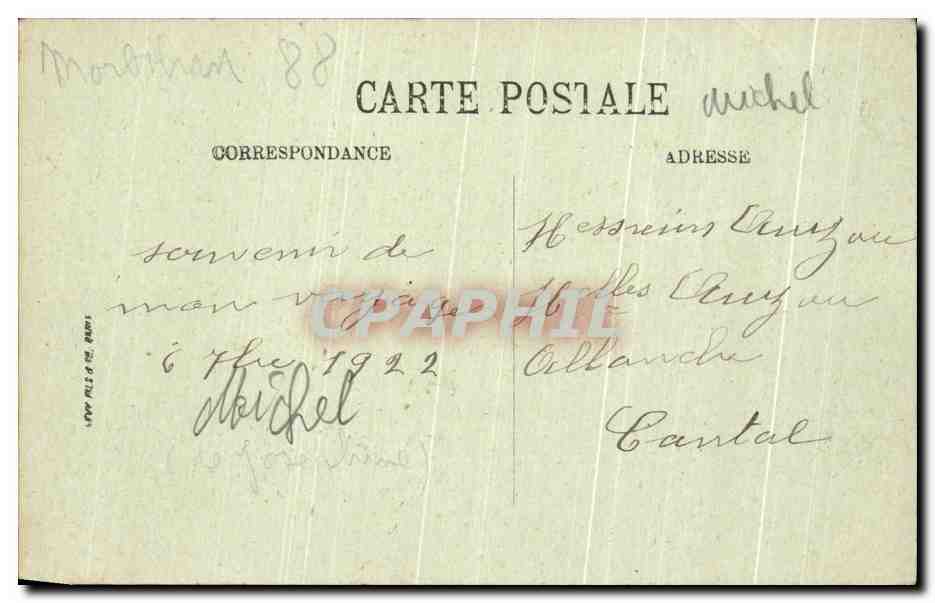 Morbihan 88
CARTE POSTALE
Michel
CORRESPONDANCE
ADRESSE
souvenir de
mon voyage
6 7bre 1922
Michel
Messieurs Auzou
Melles Auzou
Allanche
Cantal
LEVY FILS & Cie. PARIS
CPAPHIL